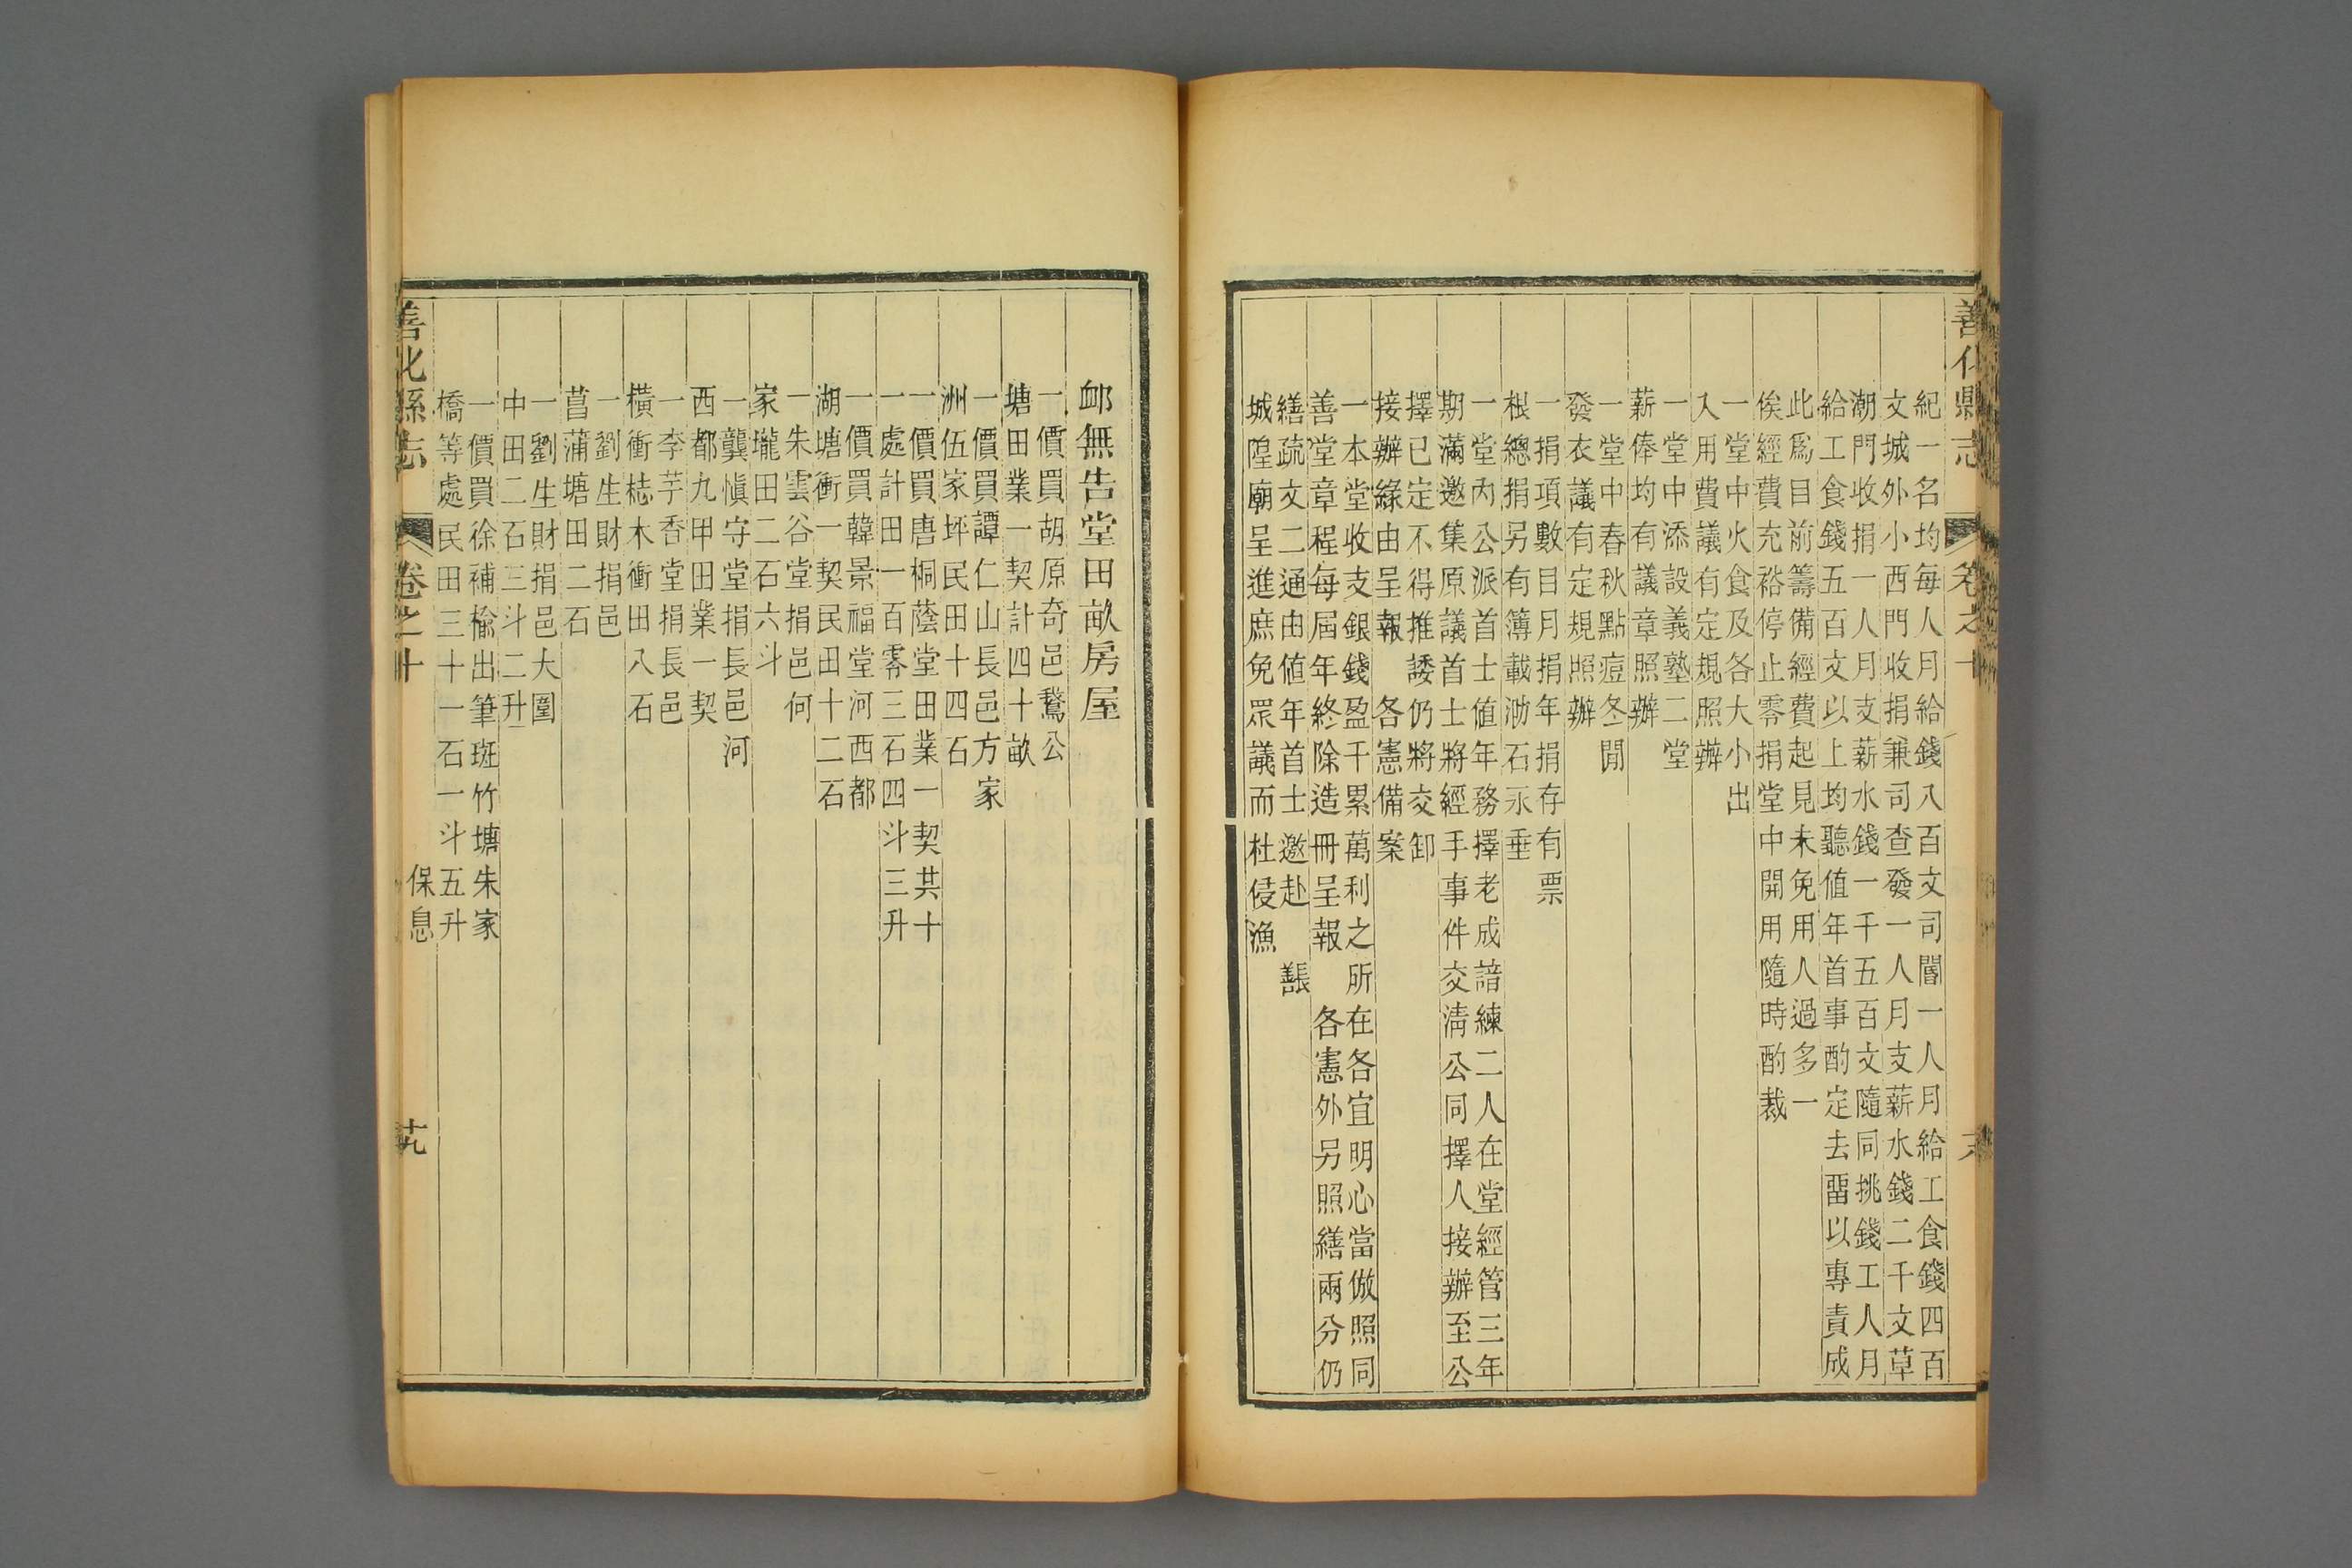 善化縣志
卷之十
紀一名均每人月給錢八百文司閽一人月給工食錢四百
文城外小西門收捐兼司查發一人月支薪水錢二千文草
潮門收捐一人月支薪水錢一千五百文隨同挑錢工人月
給工食錢五百文以上均聽值年首事酌定去畱以專責成
此為目前籌備經費起見未免用人過多一
俟經費充裕停止零捐堂中開用隨時酌裁
一堂中火食及各大小出
入用費議有定規照辦
一堂中添設義塾二堂
薪俸均有議章照辦
一堂中春秋點痘冬間
發衣議有定規照辦
一捐項數目月捐年捐存有票
根總捐另有簿載泐石永垂
一堂內公派首士值年務擇老成諳練二人在堂經管三年
期滿邀集原議首士將經手事件交淸公同擇人接辦至公
擇已定不得推諉仍將交卸
接辦緣由呈報 各憲備案
一本堂收支銀錢盈千累萬利之所在各宜明心當倣照同
善堂章程每屆年終除造冊呈報 各憲外另照繕兩分仍
繕疏文二通由值年首士邀赴
城隍廟呈進庶免眾議而杜侵漁
卹無告堂田畝房屋
一價買胡原奇邑鵞公
塘田業一契計四十畝
一價買譚仁山長邑方家
洲伍家坪民田十四石
一價買唐桐蔭堂田業一契共十
一處計田一百零三石四斗三升
一價買韓景福堂河西都
湖塘衝一契民田十二石
一朱雲谷堂捐邑何
家壠田二石六斗
一龔愼守堂捐長邑河
西都九甲田業一契
一李芋香堂捐長邑
橫衝梽木衝田八石
一劉生財捐邑
菖蒲塘田二石
一劉生財捐邑大圍
中田二石三斗二升
一價買徐補榆出筆斑竹塘朱家
橋等處民田三十一石一斗五升
善化縣志
卷之十
保息